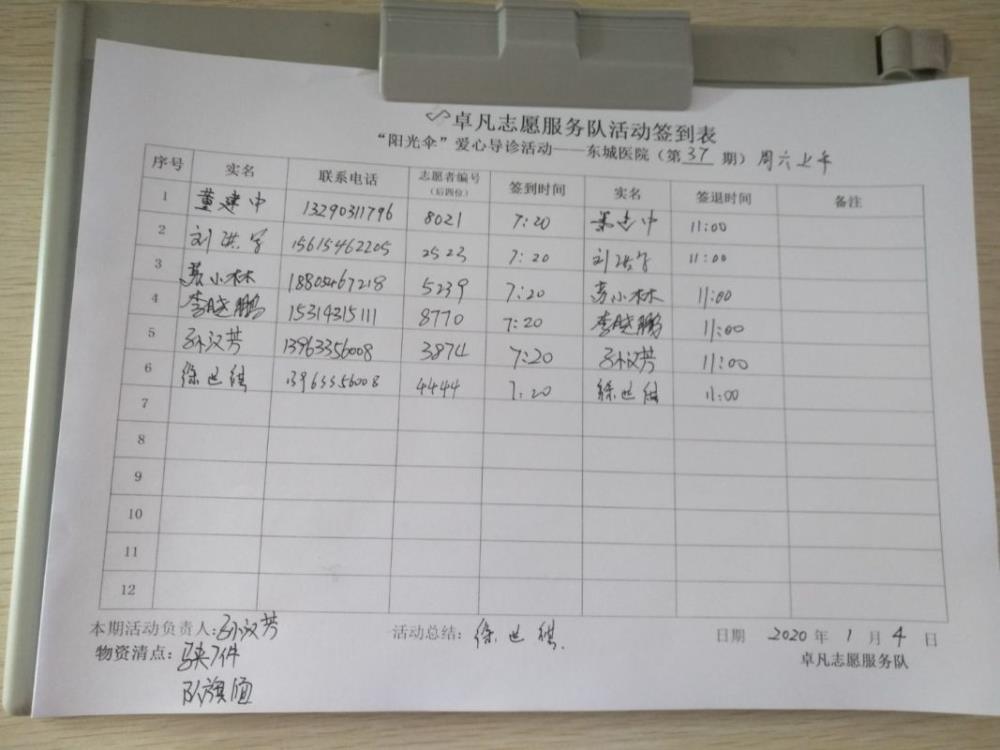 卓凡志愿服务队活动签到表
“阳光伞”爱心导诊活动——东城医院（第 37 期）周六上午
序号 实名 联系电话 志愿者编号（后四位） 签到时间 实名 签退时间 备注
1 董建中 13290311796 8021 7:20 董建中 11:00
2 刘洪字 15615462205 2523 7:20 刘洪字 11:00
3 苏小林 18805467218 5239 7:20 苏小林 11:00
4 李晓鹏 15314315111 8770 7:20 李晓鹏 11:00
5 孙汉芳 13963356008 3874 7:20 孙汉芳 11:00
6 徐 13963356008 4444 7:20 徐 11:00
7
8
9
10
11
12
本期活动负责人:孙汉芳 活动总结: 徐 日期 2020 年 1 月 4 日
物资清点: 7件 卓凡志愿服务队
队旗